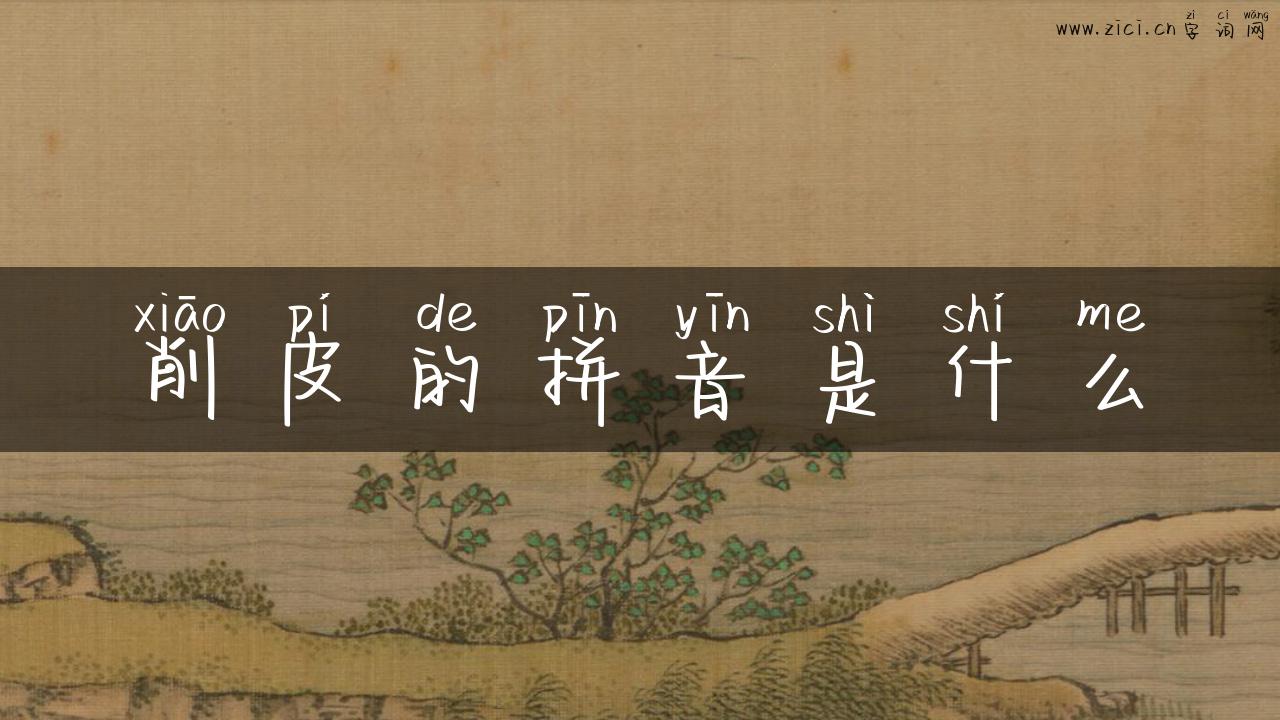 zì cí wǎng
www.zici.cn 字词网
xiāo pí de pīn yīn shì shí me
削皮的拼音是什么